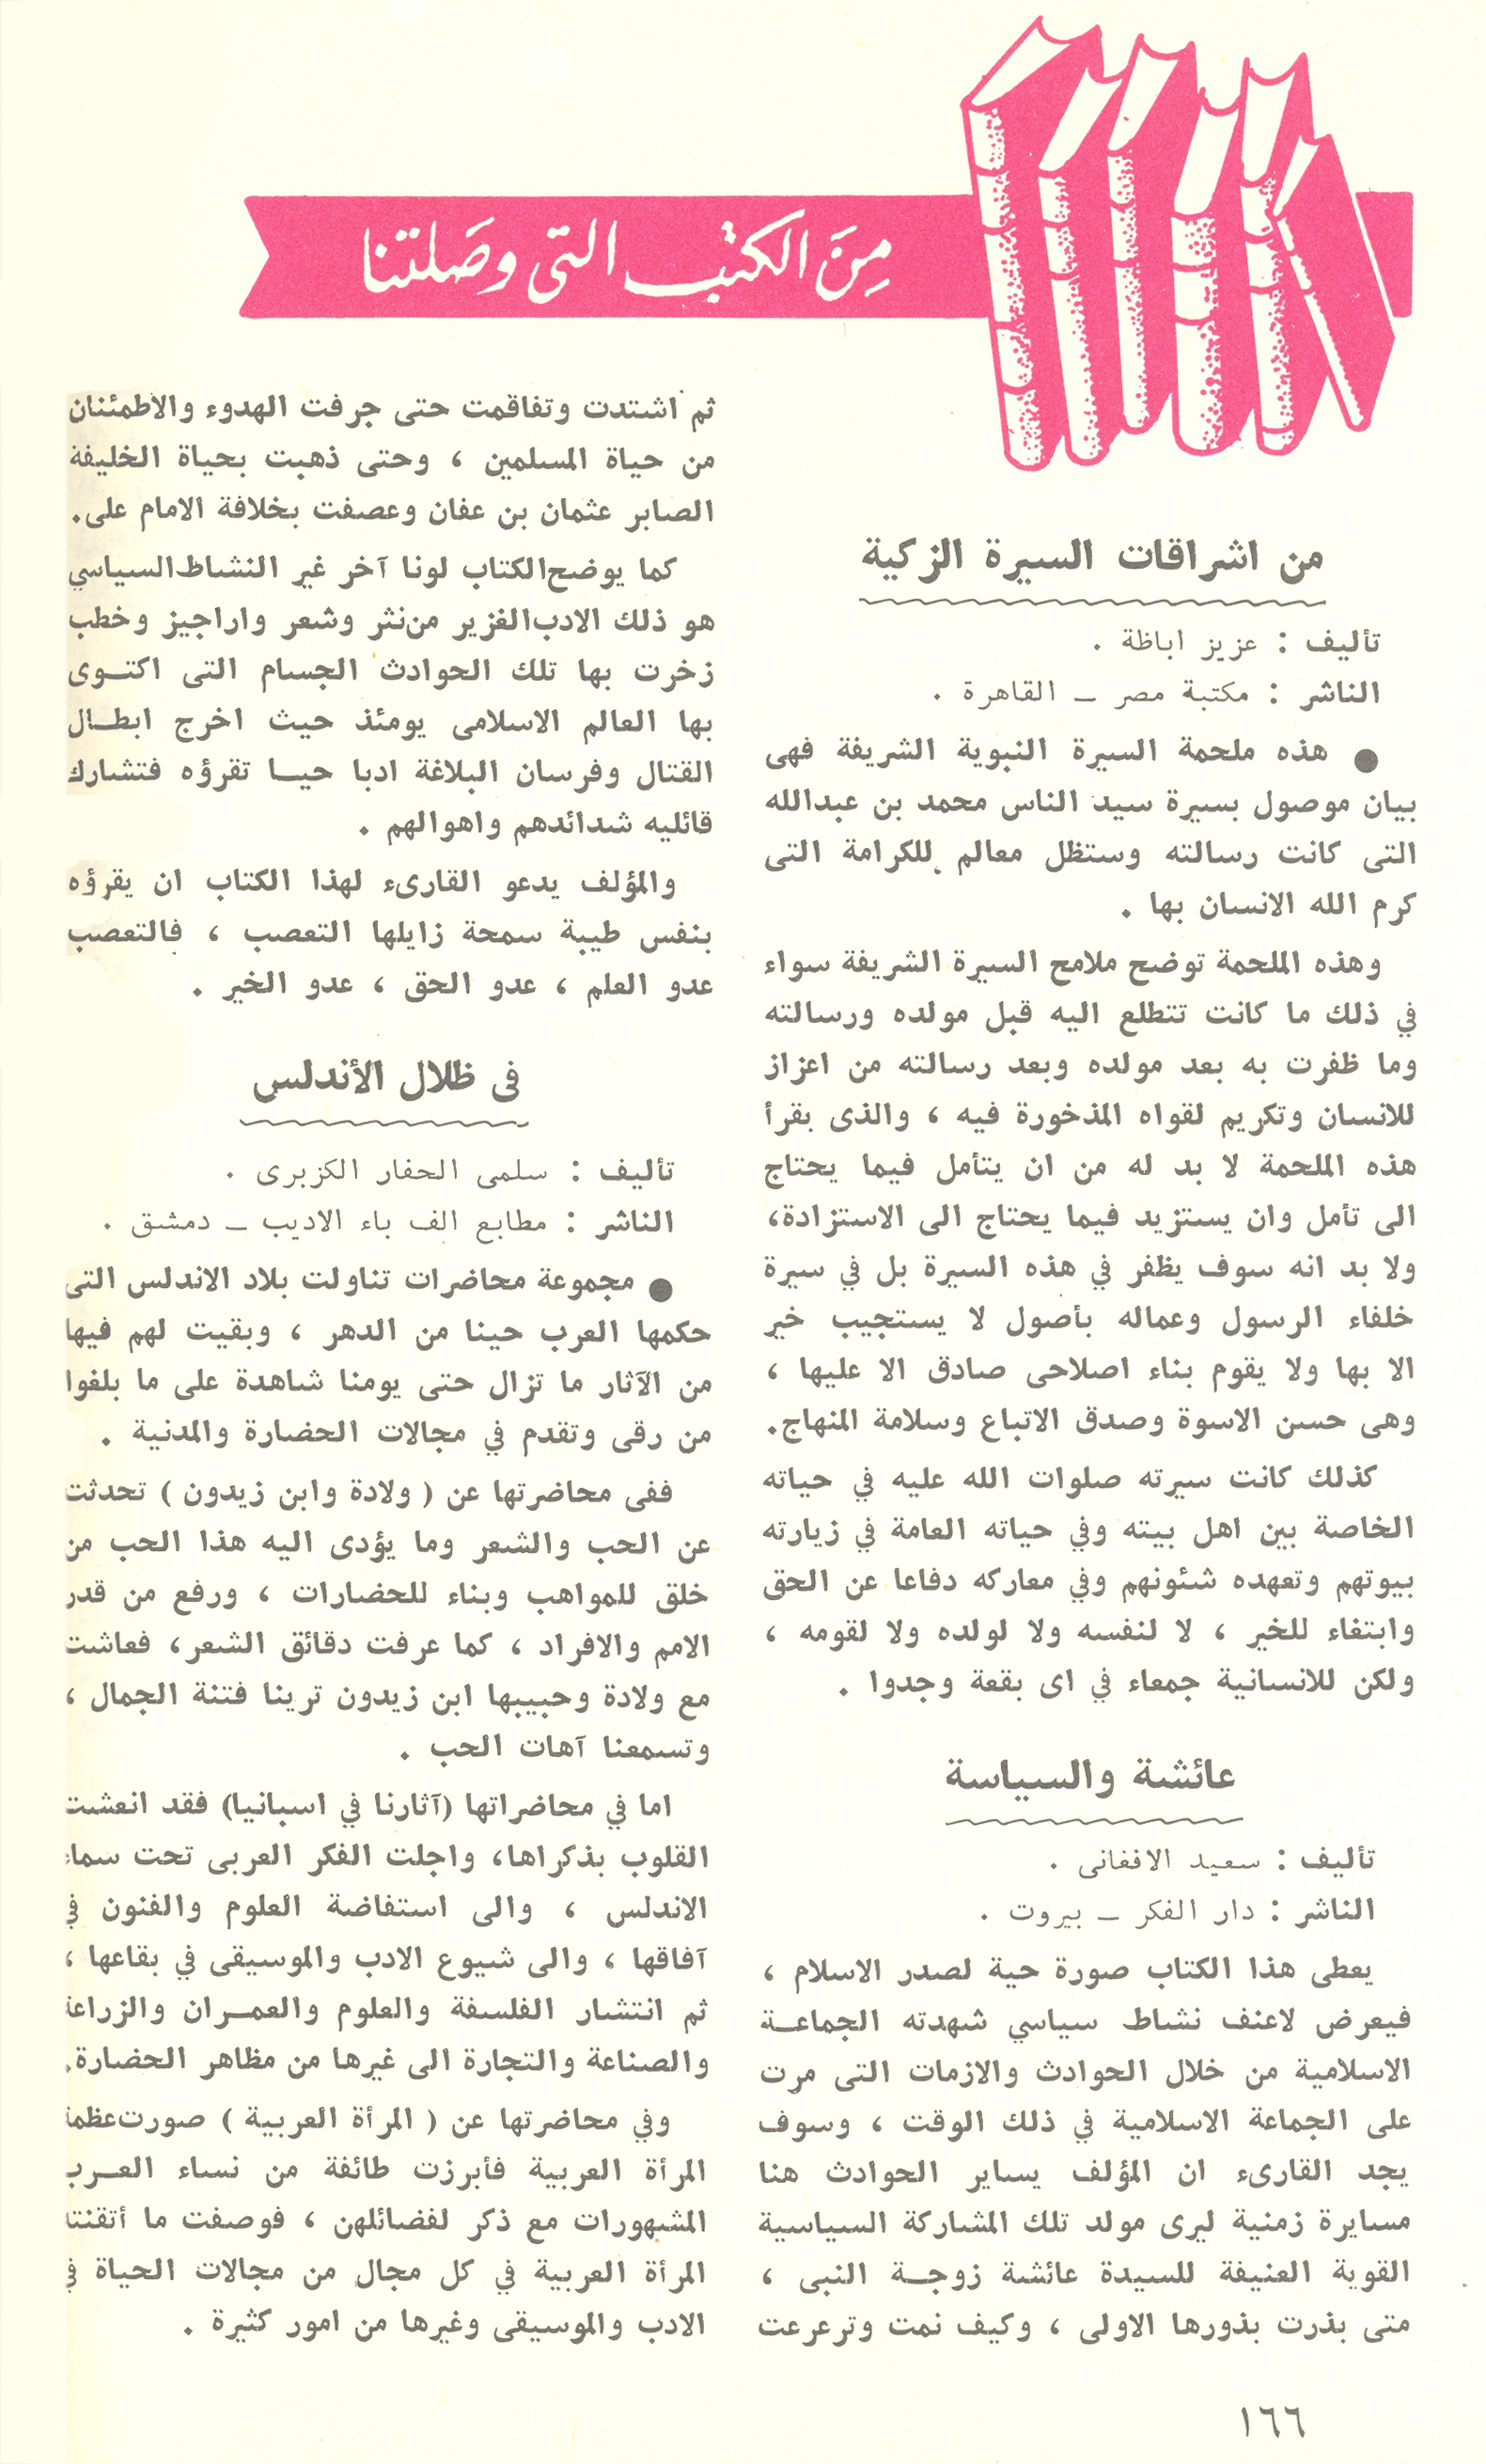 مِنَ الكتب التي وصَلتنا
من اشراقات السيرة الزكية
تأليف : عزيز اباظة .
الناشر : مكتبة مصر ــ القاهرة .
● هذه ملحمة السيرة النبوية الشريفة فهى
بيان موصول بسيرة سيد الناس محمد بن عبدالله
التى كانت رسالته وستظل معالم للكرامة التى
كرم الله الانسان بها .
وهذه الملحمة توضح ملامح السيرة الشريفة سواء
في ذلك ما كانت تتطلع اليه قبل مولده ورسالته
وما ظفرت به بعد مولده وبعد رسالته من اعزاز
للانسان وتكريم لقواه المذخورة فيه ، والذى بقرأ
هذه الملحمة لا بد له من ان يتأمل فيما يحتاج
الى تأمل وان يستزيد فيما يحتاج الى الاستزادة،
ولا بد انه سوف يظفر في هذه السيرة بل في سيرة
خلفاء الرسول وعماله بأصول لا يستجيب خير
الا بها ولا يقوم بناء اصلاحى صادق الا عليها ،
وهى حسن الاسوة وصدق الاتباع وسلامة المنهاج.
كذلك كانت سيرته صلوات الله عليه في حياته
الخاصة بين اهل بيته وفي حياته العامة في زيارته
بيوتهم وتعهده شئونهم وفي معاركه دفاعا عن الحق
وابتغاء للخير ، لا لنفسه ولا لولده ولا لقومه ،
ولكن للانسانية جمعاء في اى بقعة وجدوا .
عائشة والسياسة
تأليف : سعيد الافغانى .
الناشر : دار الفكر ــ بيروت .
يعطى هذا الكتاب صورة حية لصدر الاسلام ،
فيعرض لاعنف نشاط سياسي شهدته الجماعـة
الاسلامية من خلال الحوادث والازمات التى مرت
على الجماعة الاسلامية في ذلك الوقت ، وسوف
يجد القارىء ان المؤلف يساير الحوادث هنا
مسايرة زمنية ليرى مولد تلك المشاركة السياسية
القوية العنيفة للسيدة عائشة زوجـة النبى ،
متى بذرت بذورها الاولى ، وكيف نمت وترعرعت
ثم اشتدت وتفاقمت حتى جرفت الهدوء والاطمئنان
من حياة المسلمين ، وحتى ذهبت بحياة الخليفة
الصابر عثمان بن عفان وعصفت بخلافة الامام على.
كما يوضح الكتاب لونا آخر غير النشاط السياسي
هو ذلك الادب الغزير من نثر وشعر واراجيز وخطب
زخرت بها تلك الحوادث الجسام التى اكتـوى
بها العالم الاسلامى يومئذ حيث اخرج ابطـال
القتال وفرسان البلاغة ادبا حيـا تقرؤه فتشارك
قائليه شدائدهم واهوالهم .
والمؤلف يدعو القارىء لهذا الكتاب ان يقرؤه
بنفس طيبة سمحة زايلها التعصب ، فالتعصب
عدو العلم ، عدو الحق ، عدو الخير .
فى ظلال الأندلس
تأليف : سلمى الحفار الكزبرى .
الناشر : مطابع الف باء الاديب ــ دمشق .
● مجموعة محاضرات تناولت بلاد الاندلس التى
حكمها العرب حينا من الدهر ، وبقيت لهم فيها
من الآثار ما تزال حتى يومنا شاهدة على ما بلغوا
من رقى وتقدم في مجالات الحضارة والمدنية .
ففى محاضرتها عن ( ولادة وابن زيدون ) تحدثت
عن الحب والشعر وما يؤدى اليه هذا الحب من
خلق للمواهب وبناء للحضارات ، ورفع من قدر
الامم والافراد ، كما عرفت دقائق الشعر، فعاشت
مع ولادة وحبيبها ابن زيدون ترينا فتنة الجمال ،
وتسمعنا آهات الحب .
اما في محاضراتها (آثارنا في اسبانيا) فقد انعشت
القلوب بذكراها، واجلت الفكر العربى تحت سماء
الاندلس ، والى استفاضة العلوم والفنون في
آفاقها ، والى شيوع الادب والموسيقى في بقاعها ،
ثم انتشار الفلسفة والعلوم والعمـران والزراعة
والصناعة والتجارة الى غيرها من مظاهر الحضارة.
وفي محاضرتها عن ( المرأة العربية ) صورت عظمة
المرأة العربية فأبرزت طائفة من نساء العـرب
المشهورات مع ذكر لفضائلهن ، فوصفت ما أتقنته
المرأة العربية في كل مجال من مجالات الحياة في
الادب والموسيقى وغيرها من امور كثيرة .
١٦٦